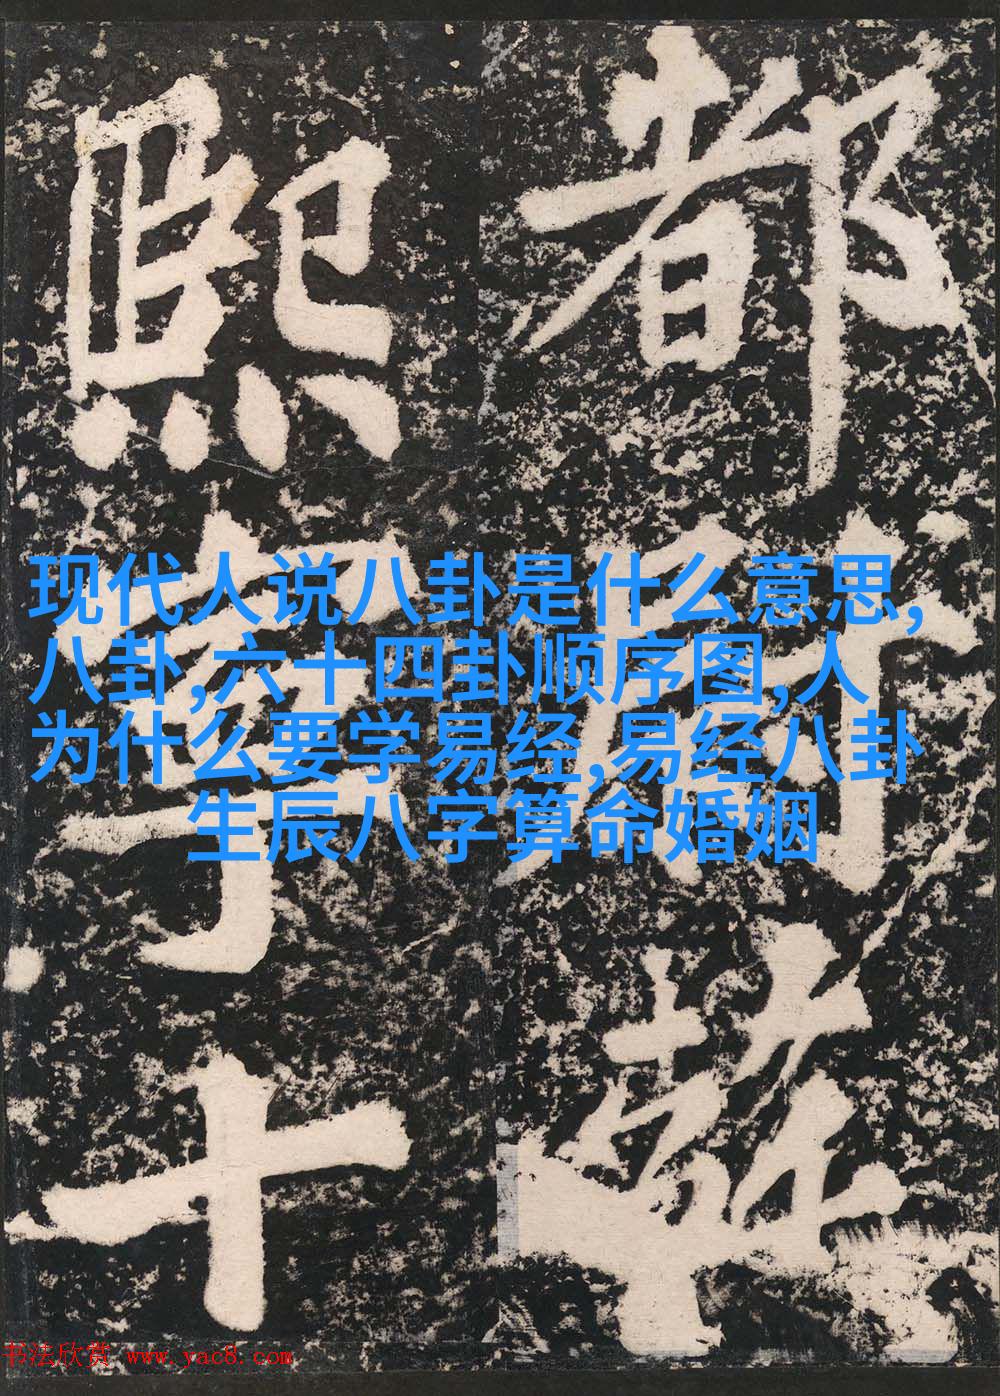 都府
熙寧十
现代人说八卦是什么意思,
八卦,六十四卦顺序图,人
为什么要学易经,易经八卦
生辰八字算命婚姻
书法欣赏 www.yac8.com